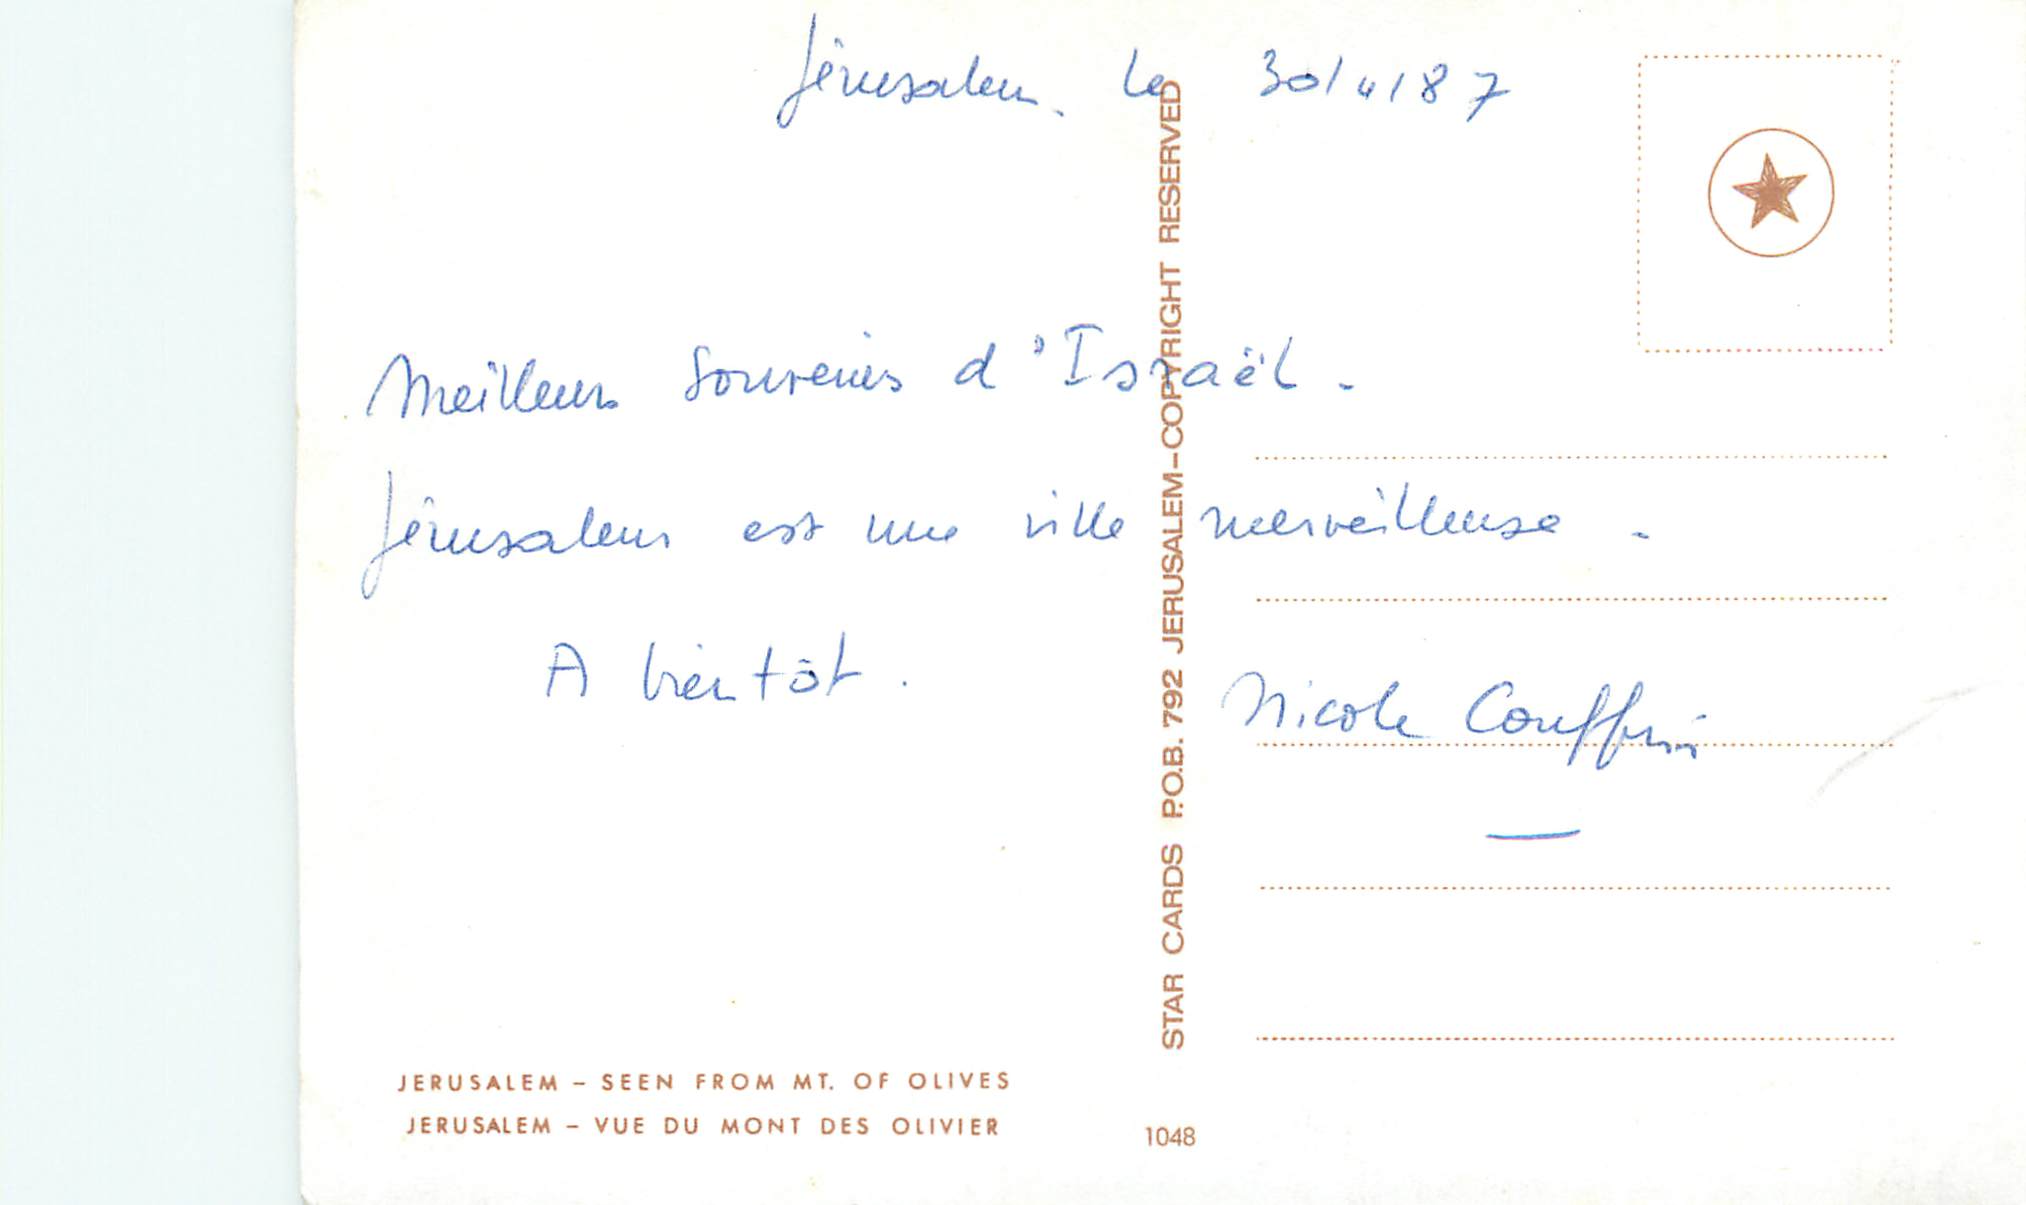 Jérusalem. le 30/4/87
Meilleurs souvenirs d'Israël.
Jérusalem est une ville merveilleuse.
A bientôt.
Nicole
STAR CARDS P.O.B. 792 JERUSALEM–COPYRIGHT RESERVED
JERUSALEM – SEEN FROM MT. OF OLIVES
JERUSALEM – VUE DU MONT DES OLIVIER
1048